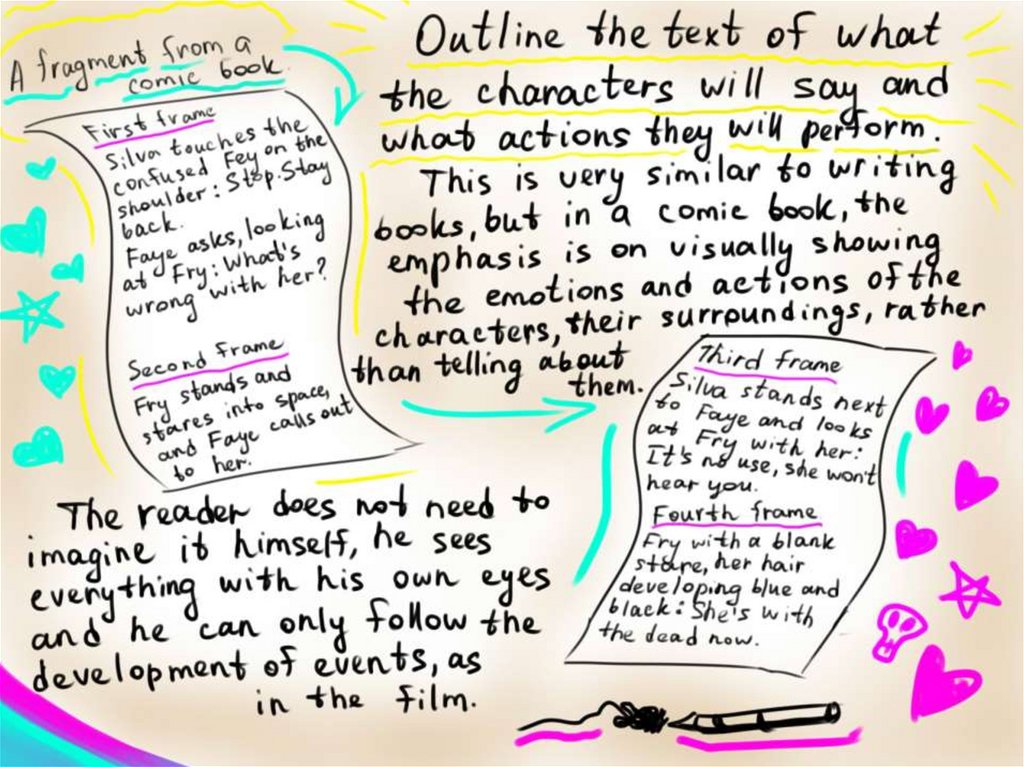 A fragment from a
comic book
First frame
Silva touches the
confused Fey on the
shoulder: Stop. Stay
back.
Faye asks, looking
at Fry: What's
wrong with her?
Second frame
Fry stands and
stares into space,
and Faye calls out
to her.
Outline the text of what
the characters will say and
what actions they will perform.
This is very similar to writing
books, but in a comic book, the
emphasis is on visually showing
the emotions and actions of the
characters, their surroundings, rather
than telling about
them.
Third frame
Silva stands next
to Faye and looks
at Fry with her:
It's no use, she won't
hear you.
Fourth frame
Fry with a blank
stare, her hair
developing blue and
black: She's with
the dead now.
The reader does not need to
imagine it himself, he sees
everything with his own eyes
and he can only follow the
development of events, as
in the film.